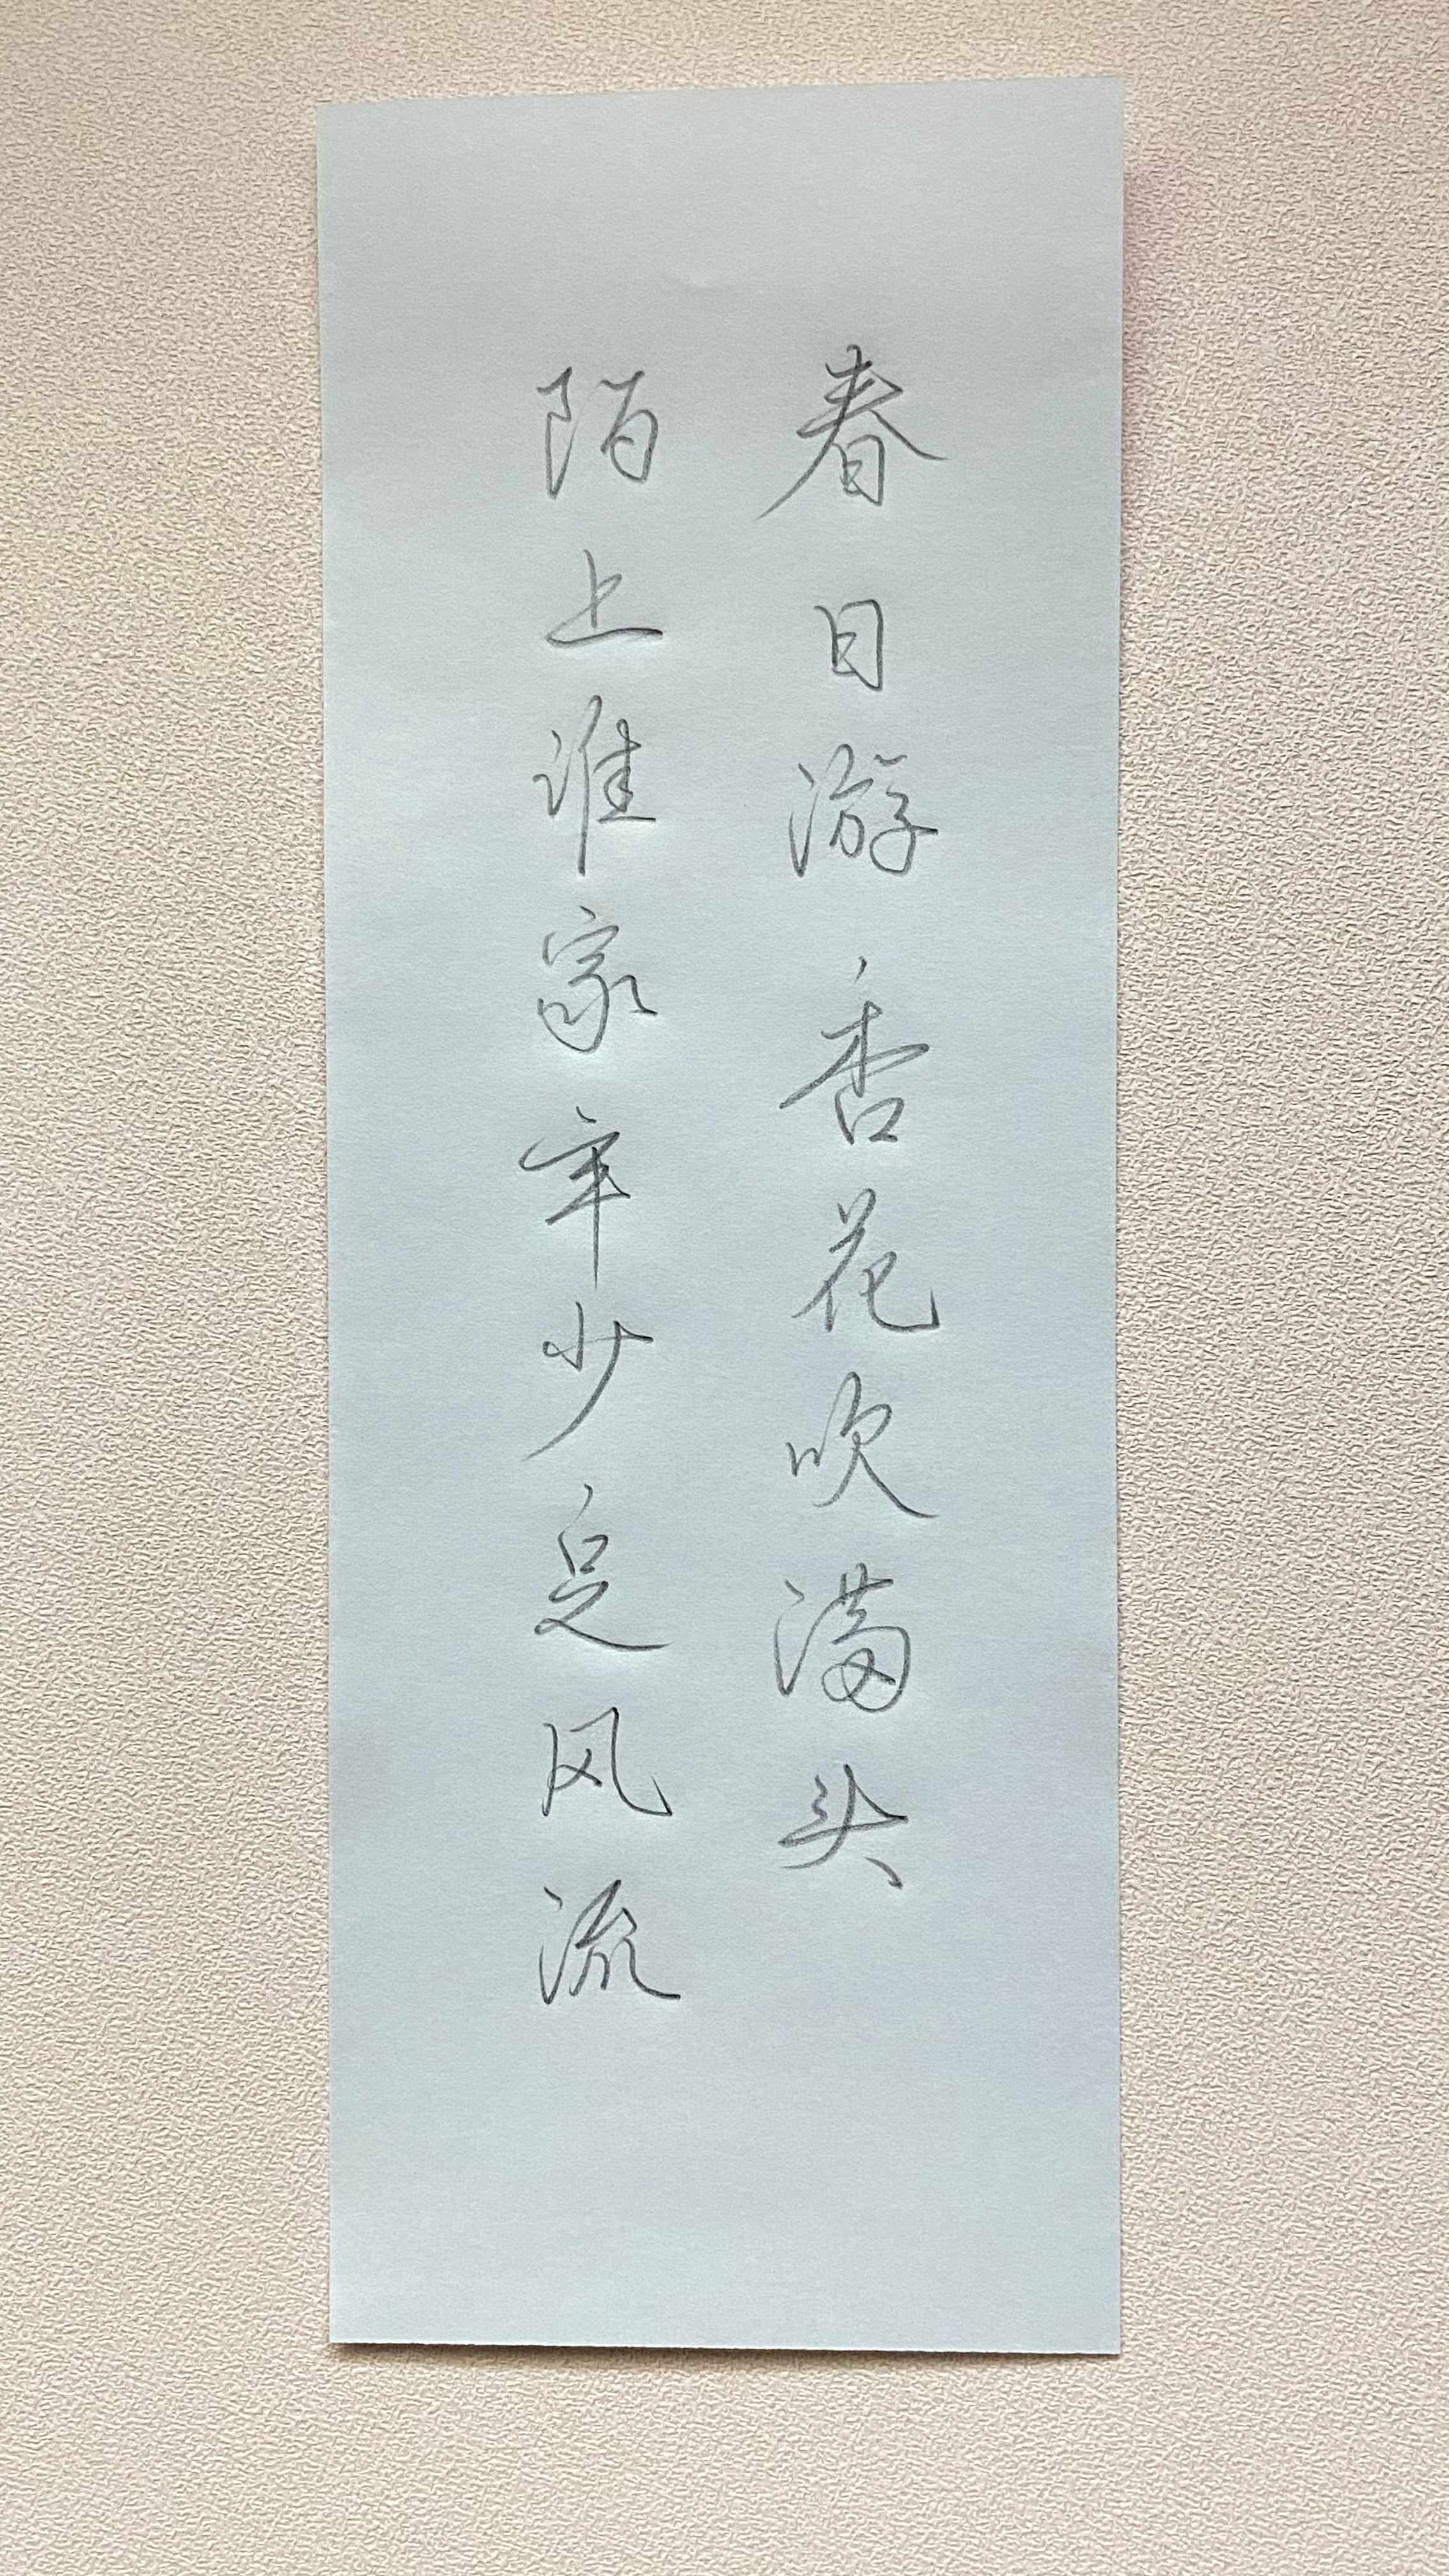 春日游杏花吹满头
陌上谁家年少足风流